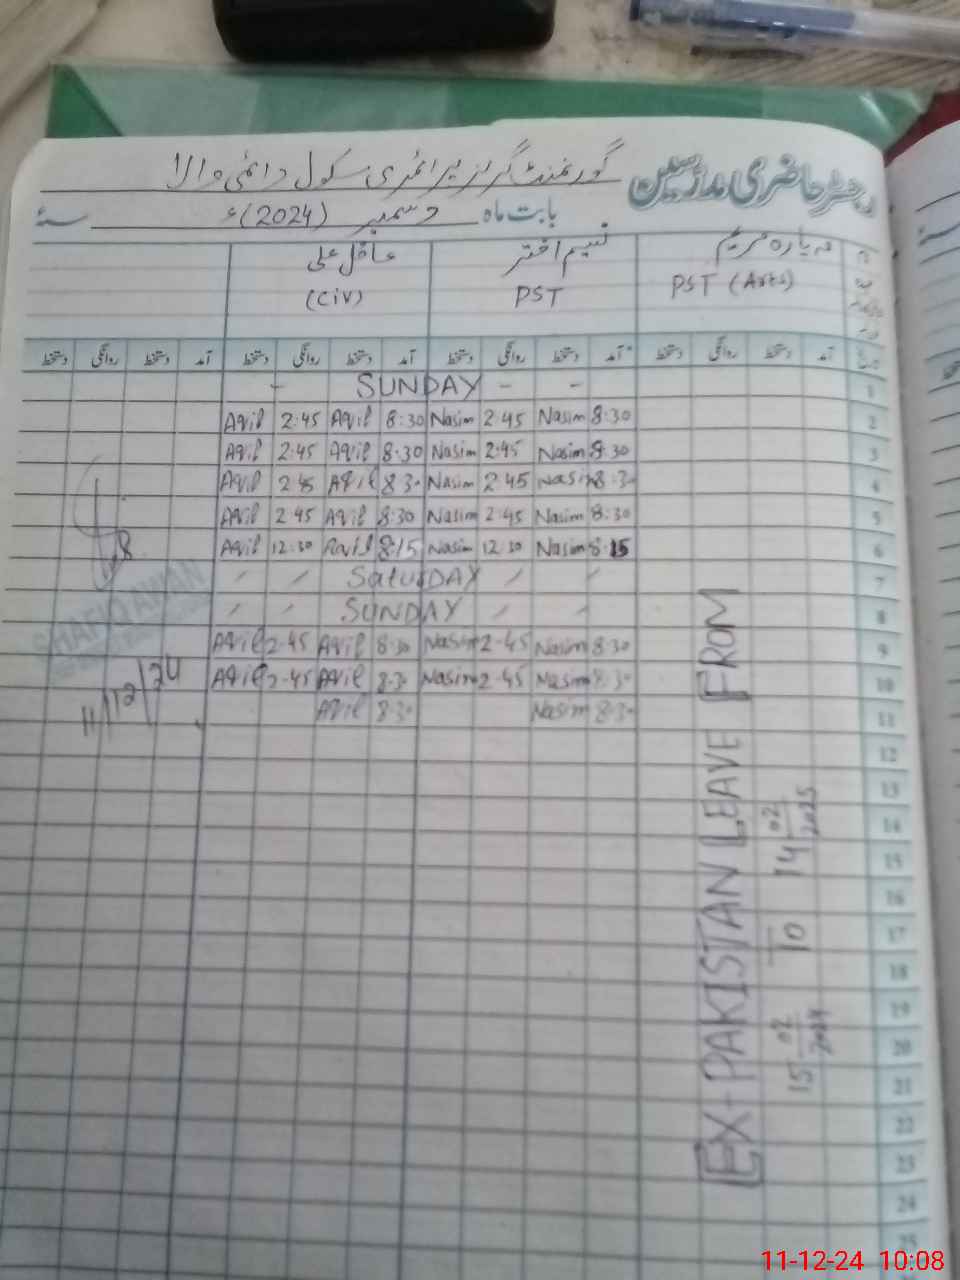 رجسٹر حاضری مدرسین گورنمنٹ گرلز پرائمری سکول
بابت ماہ دسمبر (2024)ء سنہ
مہ پارہ مریم نسیم اختر عاقل علی
PST (Arts) PST (Civ)
آمد دستخط روانگی دستخط آمد دستخط روانگی دستخط آمد دستخط روانگی دستخط آمد دستخط روانگی دستخط
1 - - SUNDAY -
2 8:30 Nasim 2:45 Nasim 8:30 Aqil 2:45 Aqil
3 8:30 Nasim 2:45 Nasim 8:30 Aqil 2:45 Aqil
4 8:30 Nasim 2:45 Nasim 8:30 Aqil 2:45 Aqil
5 8:30 Nasim 2:45 Nasim 8:30 Aqil 2:45 Aqil
6 8:15 Nasim 12:30 Nasim 8:15 Aqil 12:30 Aqil
7 SaturDAY
8 SUNDAY
9 8:30 Nasim 2:45 Nasim 8:30 Aqil 2:45 Aqil
10 8:30 Nasim 2:45 Nasim 8:30 Aqil 2:45 Aqil
11 8:30 Nasim 8:30 Aqil
12
13
14
15
16
17
18
19
20
21
22
23
24
25
EX-PAKISTAN LEAVE FROM
15 02 2024 To 14 02 2025
SHAFIQ AWAN
11/12/24
11-12-24 10:08